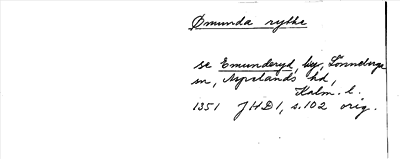 Ømunda rythe
se Emunderyd, by, Lönneberga
sn, Aspelands hd,
Kalm. l.
1351 JHD1, s.102 orig.